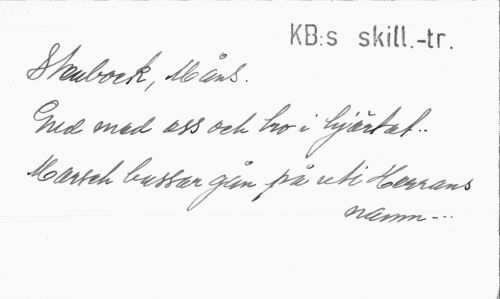 KB:s skill.-tr.
Stenbock, Måns.
Gud med oss och tro i hjärtat..
Marsch bussar gån på uti Herrans
namn...